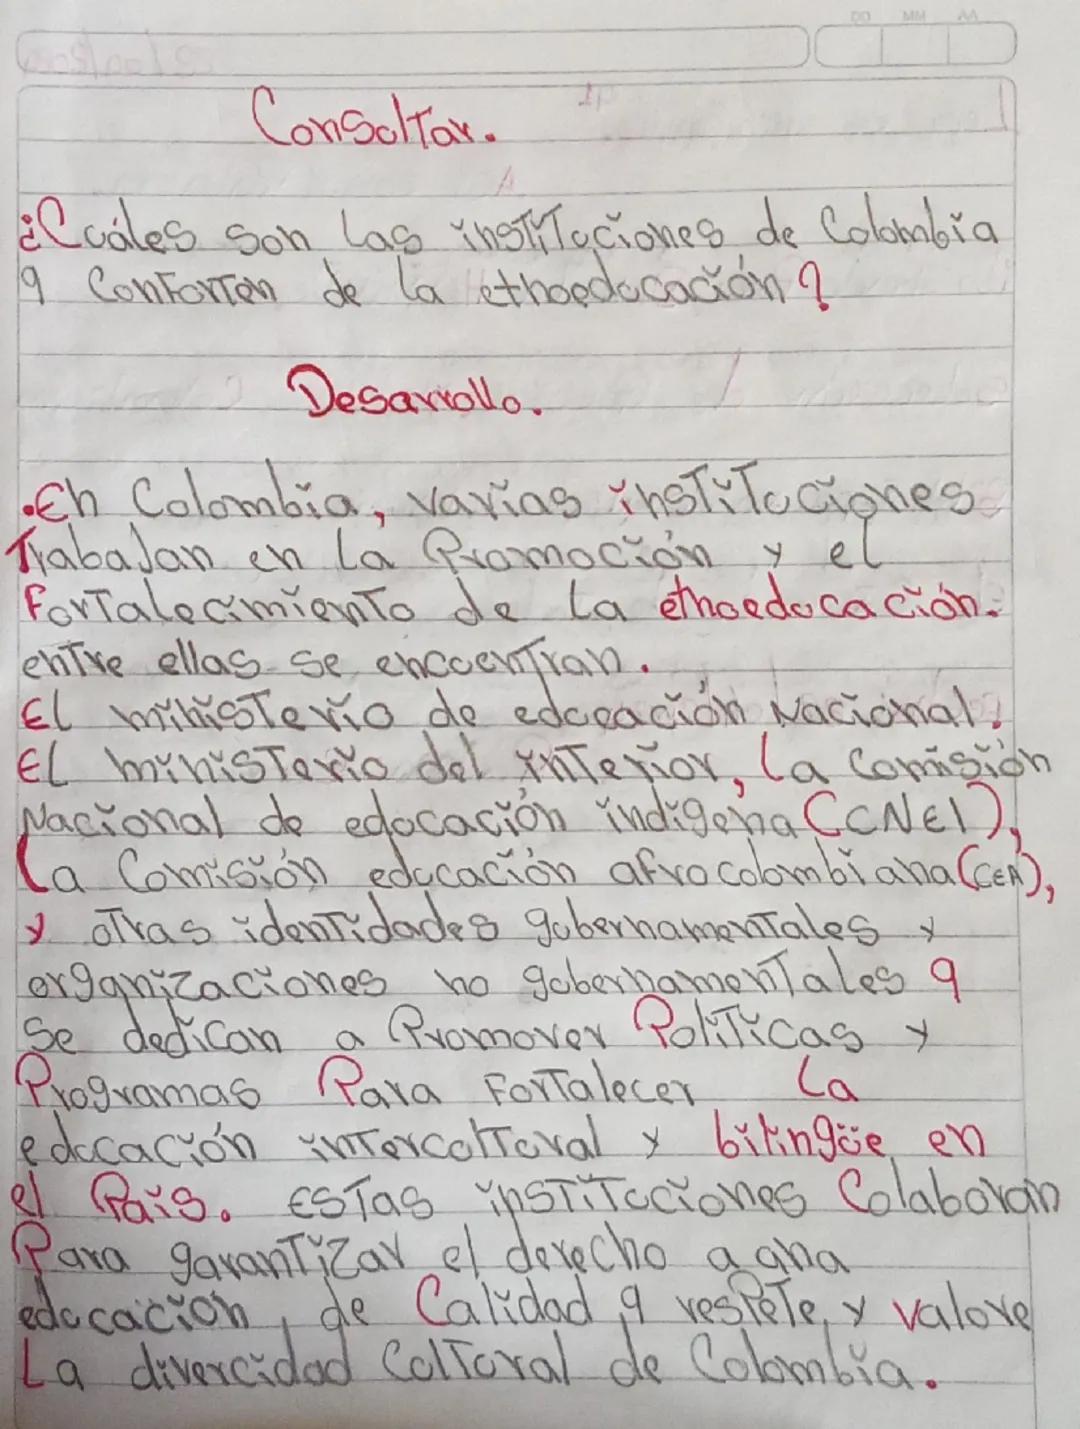 Consultar.
¿Cuáles son las instituciones de Colombia
q Conforten de la ethoeducación?
Desarrollo.
.En Colombia, varias instituciones
Trabajan en la Promoción y el
Fortalecimiento de la ethoeducación.
entre ellas se encuentran.
El ministerio de educación Nacional.
El ministerio del interior, la Comisión
Nacional de educación indígena (CNEI),
La Comisión educación afrocolombiana (CEA),
y otras identidades gubernamentales y
organizaciones no gubernamentales q
se dedican a Promover Políticas y
Programas Para Fortalecer la
educación intercultural y bilingüe en
el País. Estas instituciones Colaboran
Para garantizar el derecho a una
educación, de Calidad q respete y valore
La divercidad Cultural de Colombia.